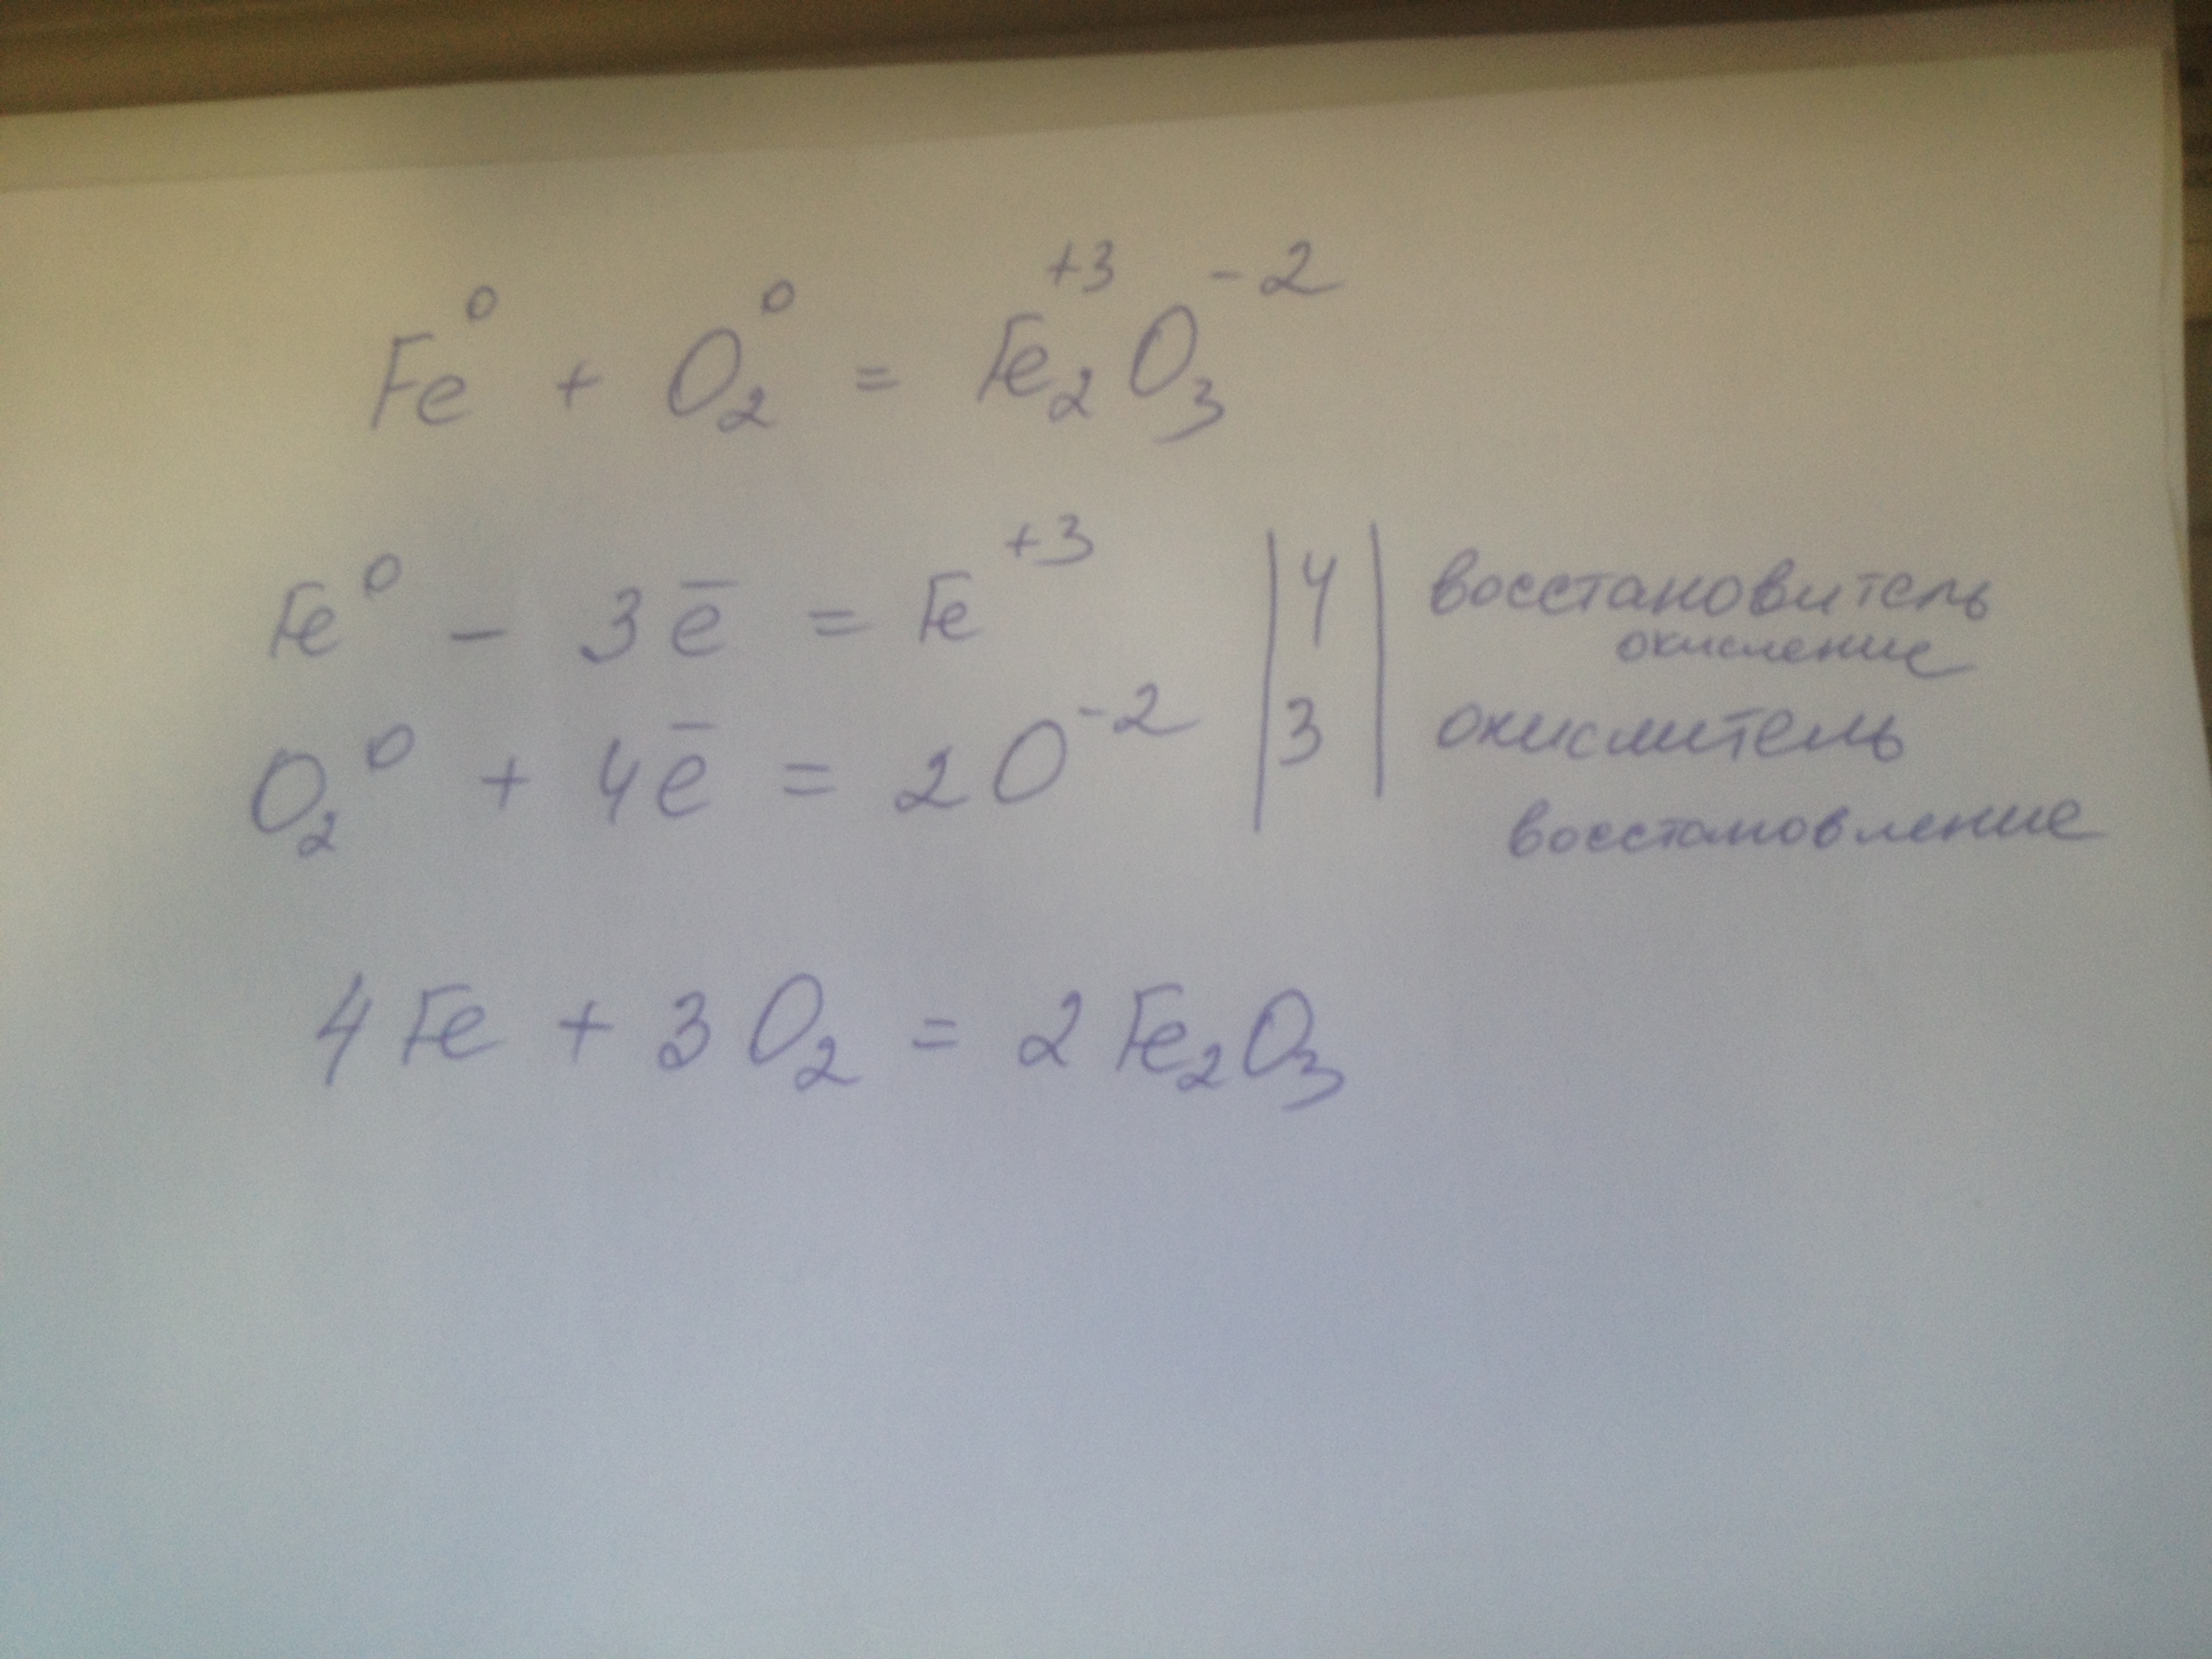 Fe⁰ + O₂⁰ = Fe₂⁺³O₃⁻²
Fe⁰ − 3e̅ = Fe⁺³ | 4 | восстановитель
окисление
O₂⁰ + 4e̅ = 2O⁻² | 3 | окислитель
восстановление
4Fe + 3O₂ = 2Fe₂O₃